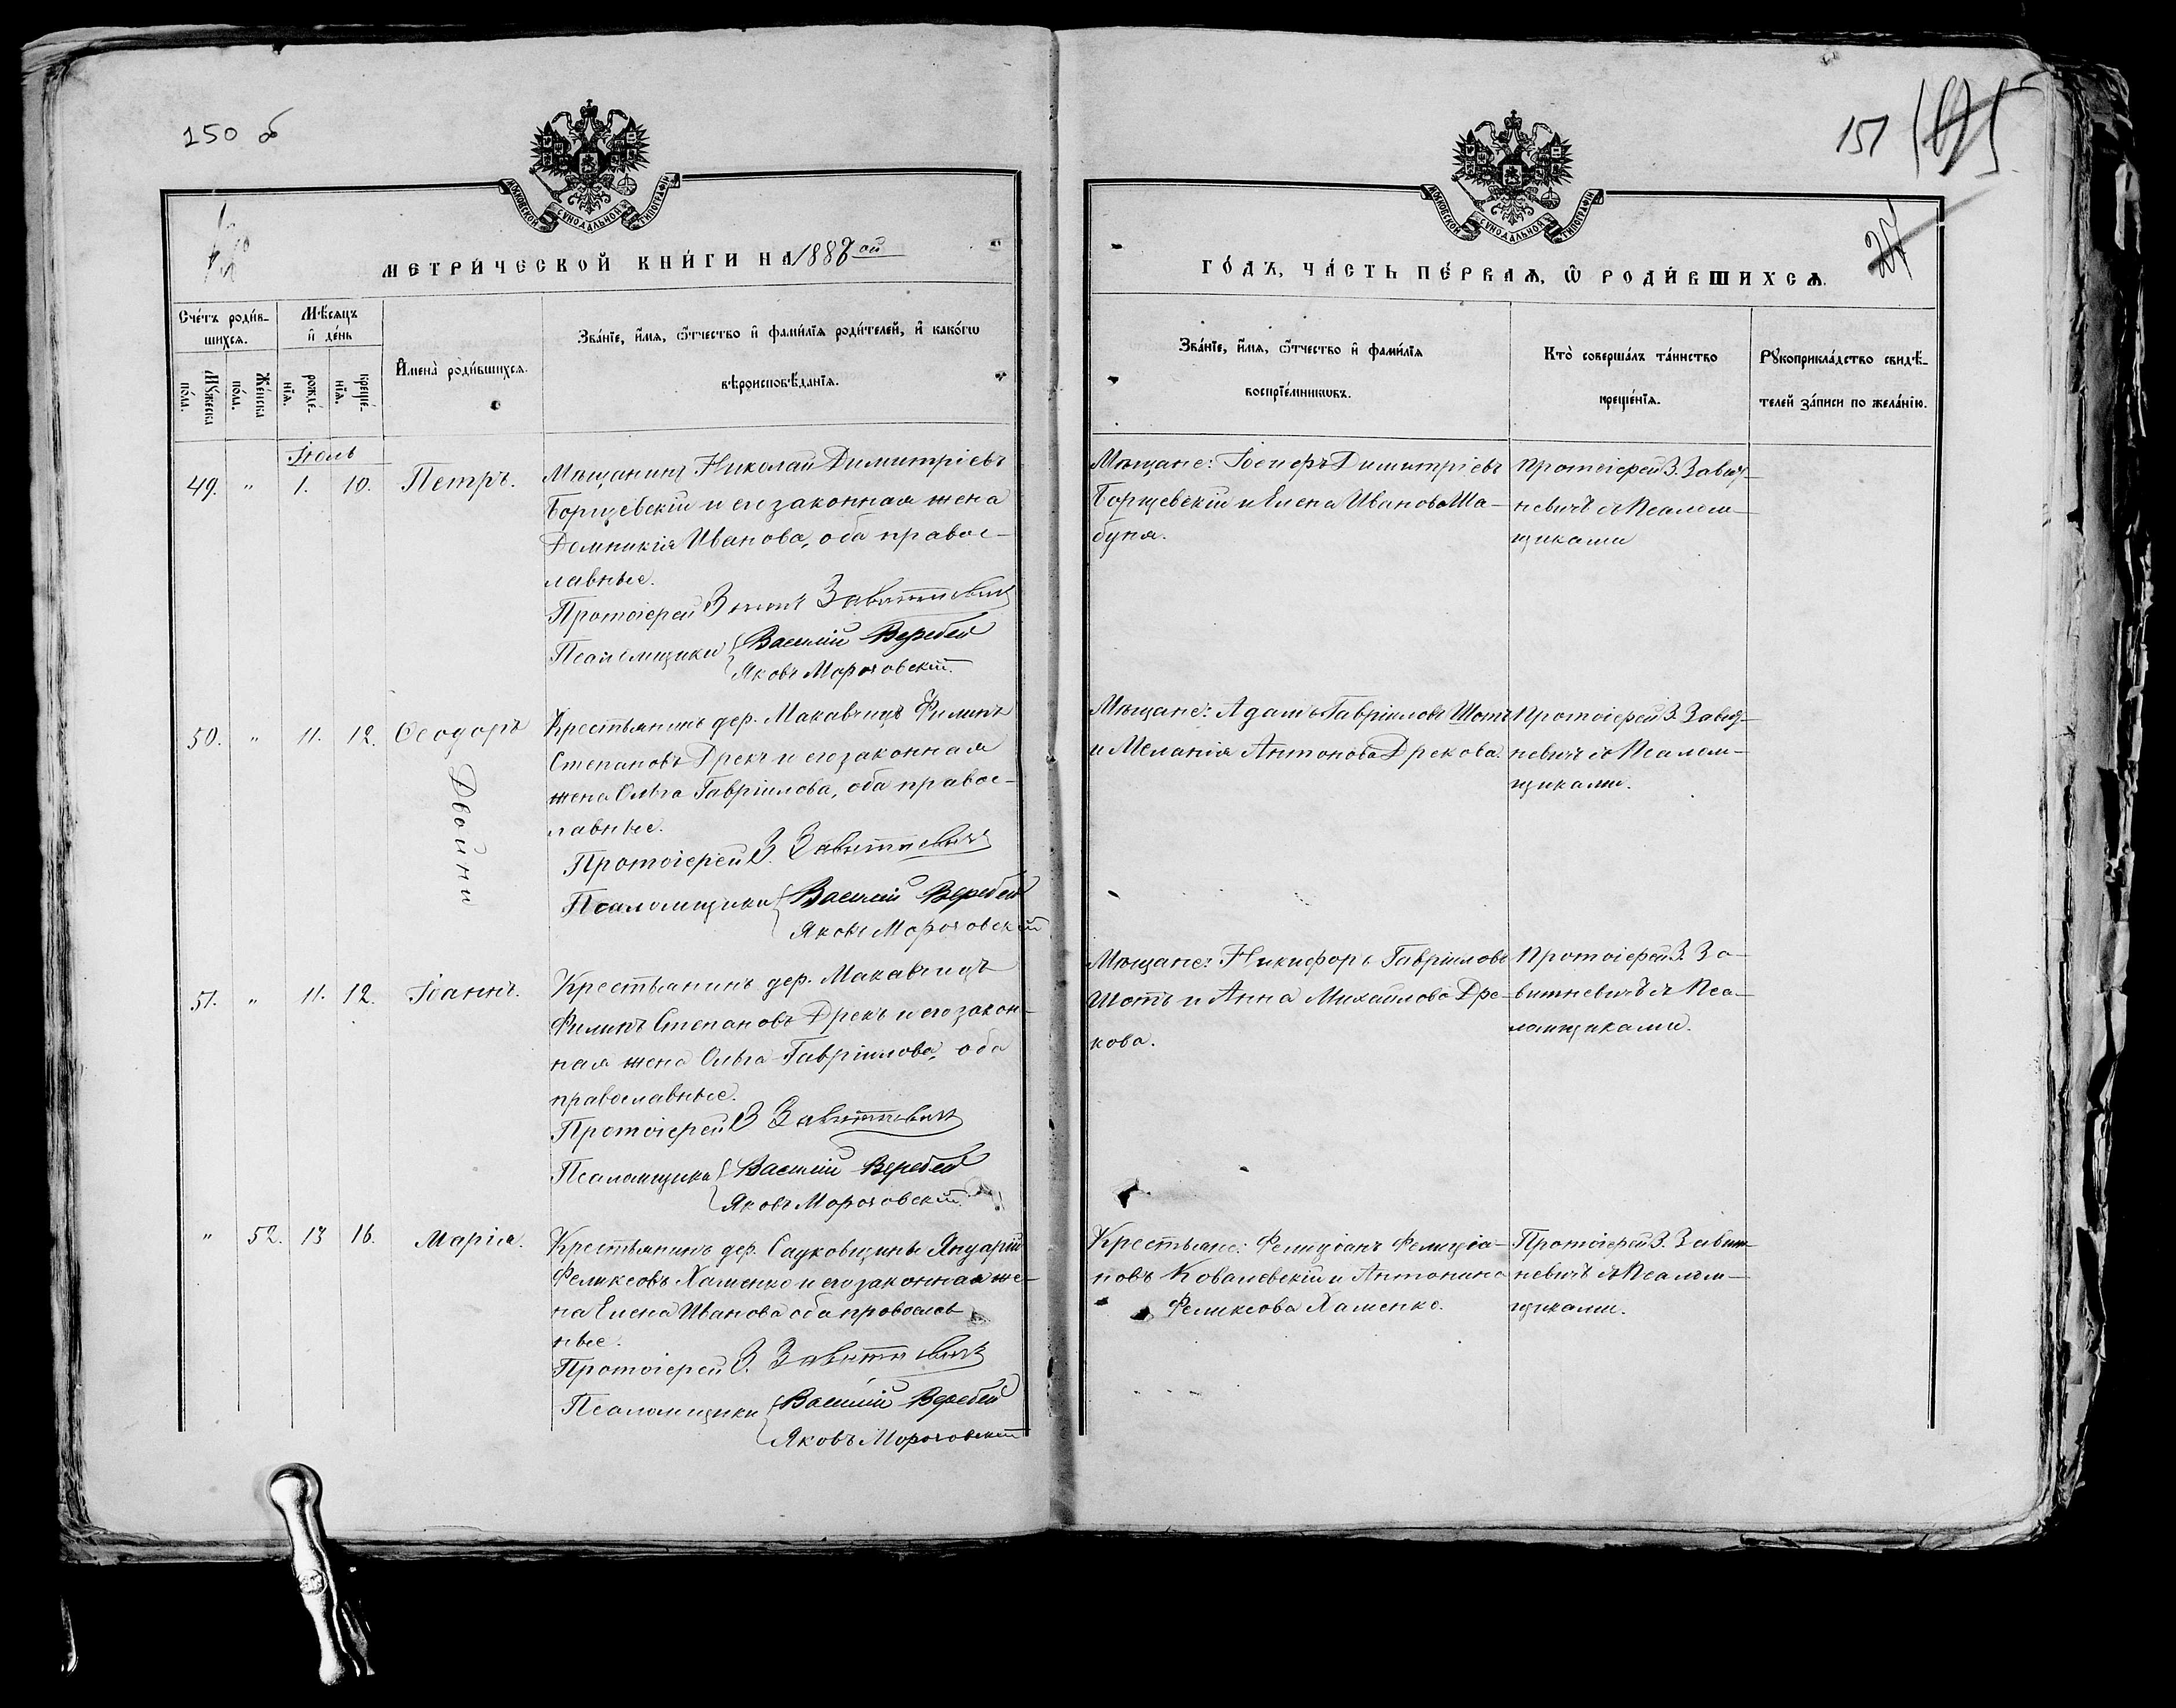 150 об
МОСКОВСКОЙ СУНОДАЛЬНОЙ ТИПОГРАФІИ
МЕТРИ́ЧЕСКОЙ КНИ́ГИ НА 1888ой
Сче́тъ роди́в-
шихся.
Мѣ́сяцъ
и҆ де́нь
Мꙋ́жеска
по́ла.
Же́нска
по́ла.
рожде́-
нїѧ.
креще́-
нїѧ.
И҆мена̀ роди́вшихся.
Зва́нїе, и҆́мѧ, ѻ҆́тчество и҆ фами́лїѧ роди́телей, и҆ како́гѡ
вѣроисповѣ́данїѧ.
Іюль
49. " 1. 10. Петръ.
Мѣщанинъ Николай Димитріевъ
Борщевскій и его законная жена
Домникія Иванова, оба правос-
лавные.
Протоіерей З Завитневичъ
Псаломщики Василій Веребей
Яковъ Морочовскій.
50. " 11. 12. Ѳеодоръ
Двойни
Крестьянинъ дер. Макавчицъ Филипъ
Степановъ Дрекъ и его законная
жена Ольга Гавріилова, оба правос-
лавные.
Протоіерей З. Завитневичъ
Псаломщики Василій Веребей
Яковъ Морочовскій
51. " 11. 12. Іоаннъ.
Крестьянинъ дер. Макавчицъ
Филипъ Степановъ Дрекъ и его закон-
ная жена Ольга Гавріилова, оба
православные.
Протоіерей З Завитневичъ
Псаломщики Василій Веребей
Яковъ Морочовскій.
" 52. 13 16. Марія.
Крестьянинъ дер. Садковщины Януарій
Феликсовъ Хаменко и его законная же-
на Елена Иванова оба православ
ные.
Протоіерей З. Завитневичъ
Псаломщики Василій Веребей
Яковъ Морочовскій
151
27
МОСКОВСКОЙ СУНОДАЛЬНОЙ ТИПОГРАФІИ
ГО́ДЪ, ЧА́СТЬ ПЕ́РВАѦ, Ѡ҆ РОДИ́ВШИХСѦ.
Зва́нїе, и҆́мѧ, ѻ҆́тчество и҆ фами́лїѧ
воспрїе́мникѡвъ.
Кто̀ соверша́лъ та́инство
креще́нїѧ.
Рꙋкоприкла́дство свидѣ́-
телей за́писи по жела́нїю.
Мѣщане: Іосифъ Димитріевъ
Борщевскій и Елена Иванова Ша-
буня.
Протоіерей З. Завит-
невичъ съ Псалом-
щиками
Мѣщане: Адамъ Гавріиловъ Шотъ
и Меланія Антонова Дрекова.
Протоіерей З. Завит-
невичъ съ Псалом-
щиками.
Мѣщане: Никифоръ Гавріиловъ
Шотъ и Анна Михайлова Дре-
кова.
Протоіерей З. За-
витневичъ съ Пса-
ломщиками.
Крестьяне: Фелиціанъ Фелиціа-
новъ Ковалевскій и Антонина
Феликсова Хаменко.
Протоіерей З. Завит-
невичъ съ Псалом-
щиками.